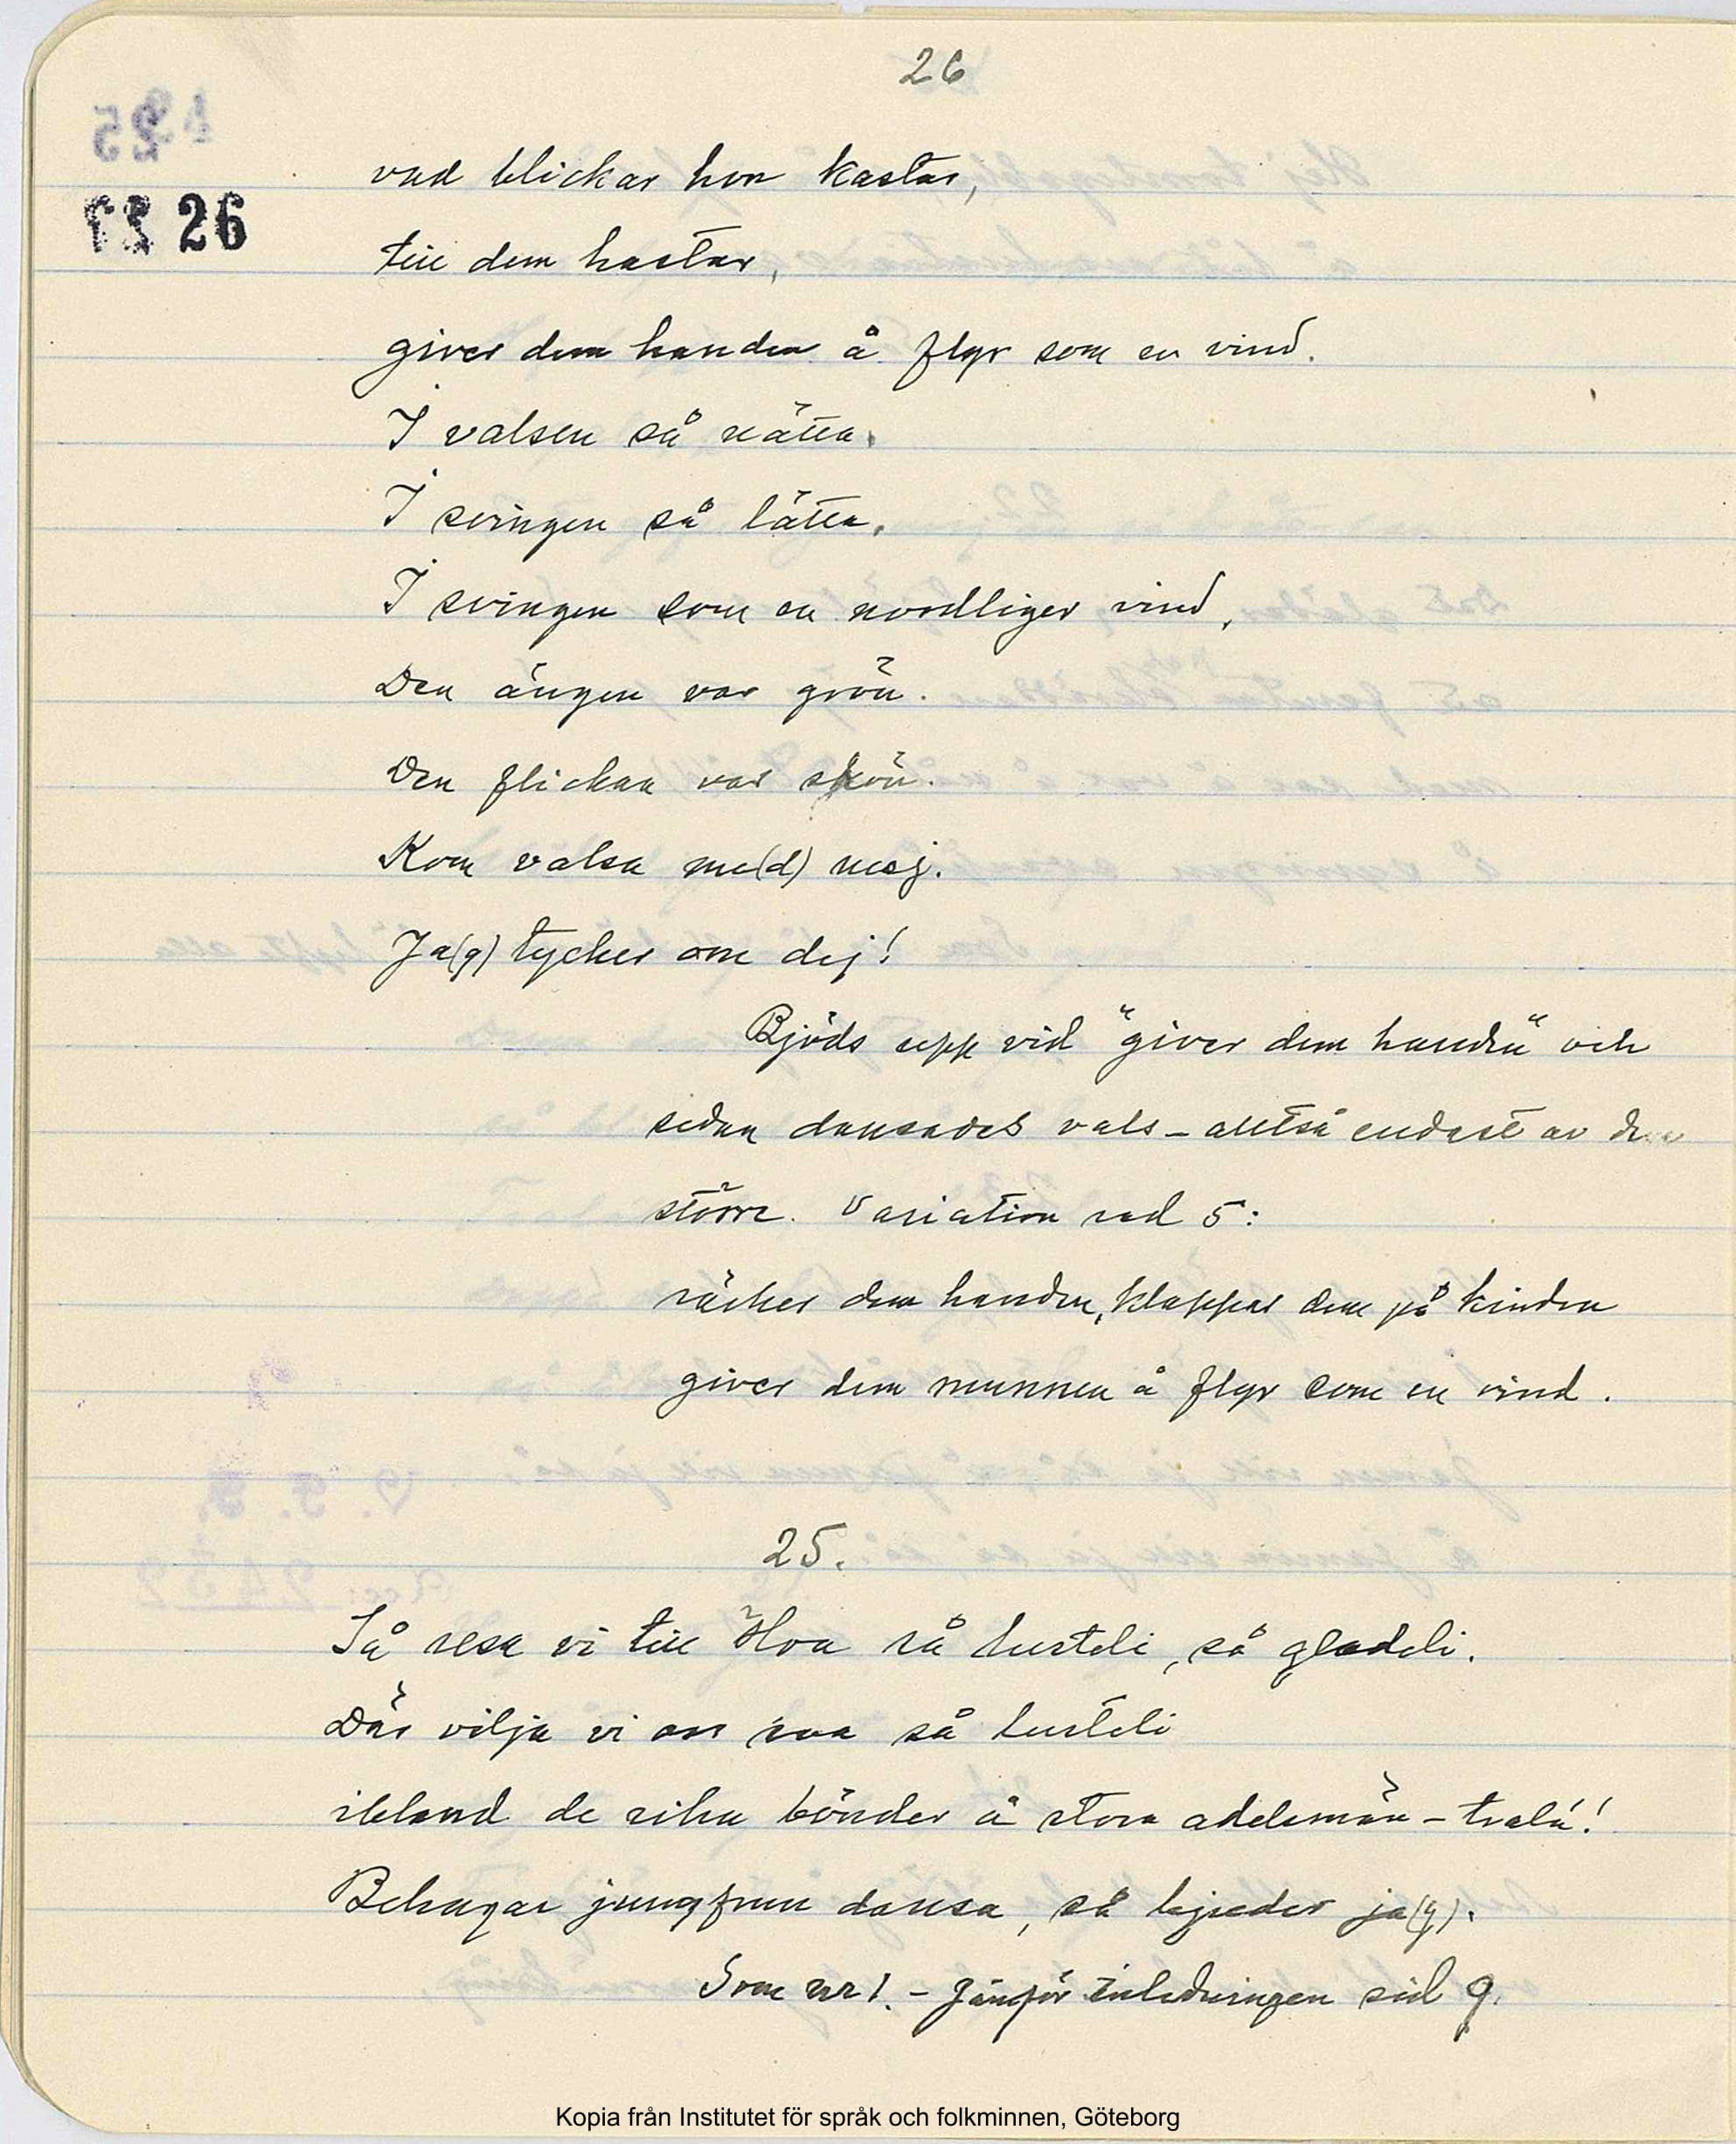 26
26
vad blickar hon kastar,
till dem hastar,
giver dem handen å flyr som en vind.
I valsen så nätta.
I svingen så lätta.
I svingen som en nordliger vind,
Den ängen var grön.
Den flickan var skön.
Kom valsa me(d) mej.
Ja(g) tycker om dej!
Bjöds upp vid "giver dem handen" och
sedan dansades vals – alltså endast av de
större. Variation rad 5:
räcker dem handen, klappar dem på kinden
giver dem munnen å flyr som en vind.
25.
Så resa vi till Hova så lusteli, så gladeli.
Där vilja vi oss roa så lusteli
ibland de rika bönder å stora adelsmän – trala!
Behagar jungfrun dansa, så bjueder ja(g).
Som nr 1. – Jämför inledningen sid 9.
Kopia från Institutet för språk och folkminnen, Göteborg